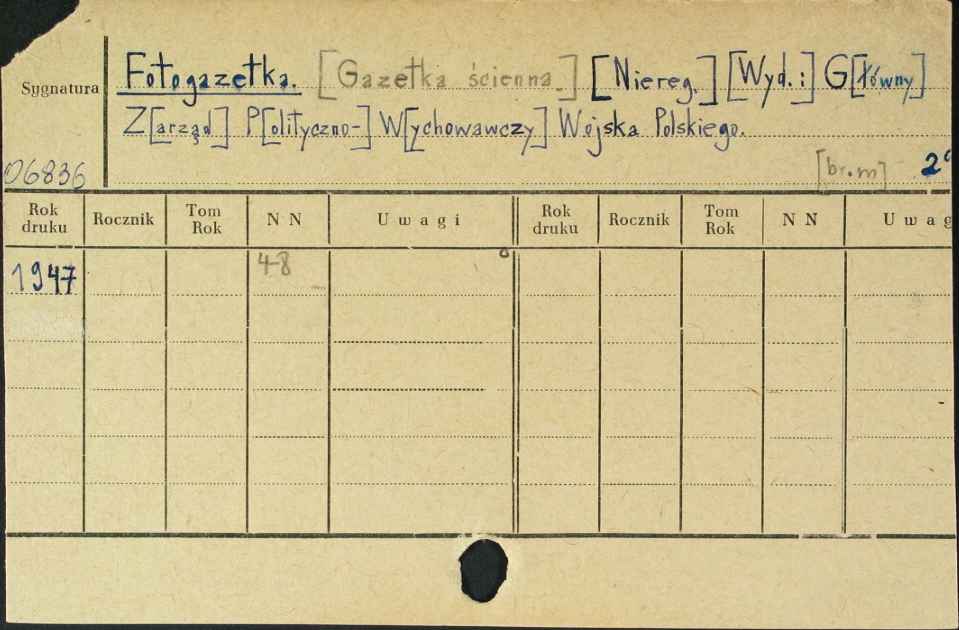 Sygnatura
Fotogazetka. [Gazetka ścienna.] [Niereg.] [Wyd.:] G[łówny]
Z[arząd] P[olityczno-] W[ychowawczy] Wojska Polskiego.
06836
[br.m] 2°
Rok druku Rocznik Tom Rok N N Uwagi Rok druku Rocznik Tom Rok N N Uwag
1947 48